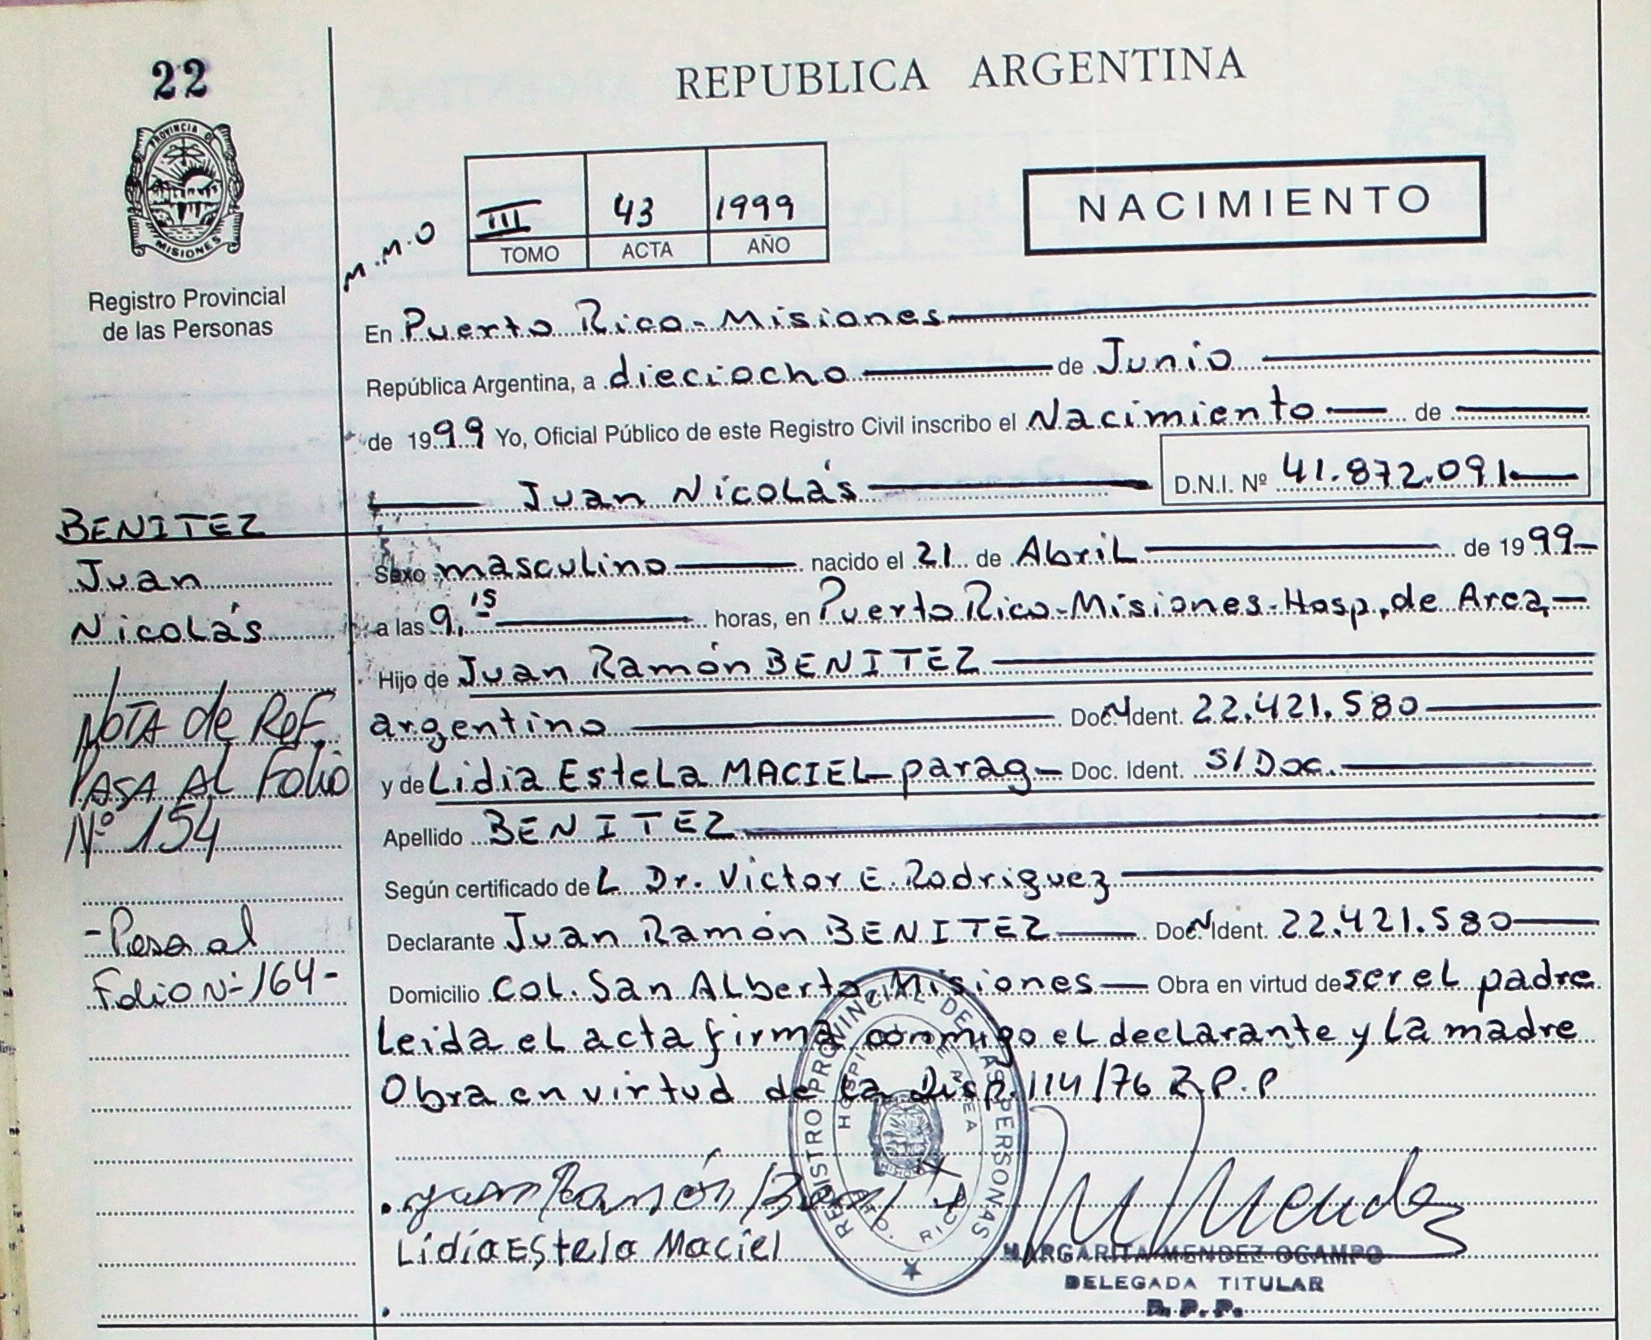 22
REPUBLICA ARGENTINA
PROVINCIA DE
MISIONES
Registro Provincial
de las Personas
M.M.O
III 43 1999
TOMO ACTA AÑO
NACIMIENTO
En Puerto Rico-Misiones
República Argentina, a dieciocho de Junio
de 1999 Yo, Oficial Público de este Registro Civil inscribo el Nacimiento de
Juan Nicolás D.N.I. Nº 41.872.091
BENITEZ
Juan
Nicolás
NOTA de REF
PASA AL Folio
Nº 154
-Pasa al
Folio Nº 164-
Sexo masculino nacido el 21 de Abril de 1999
a las 9,15 horas, en Puerto Rico-Misiones-Hosp. de Area
Hijo de Juan Ramón BENITEZ
argentino Doc. Ident. 22.421.580
y de Lidia Estela MACIEL parag Doc. Ident. S/Doc.
Apellido BENITEZ
Según certificado del Dr. Victor E. Rodriguez
Declarante Juan Ramón BENITEZ Doc. Ident. 22.421.580
Domicilio Col. San Alberto Misiones Obra en virtud de ser el padre
Leida el acta firma conmigo el declarante y la madre
Obra en virtud de la Disp. 114/76 R.P.P
REGISTRO PROVINCIAL DE LAS PERSONAS
HOSPI DE AREA
PTO. RICO
MISIONES
Juan Ramón Benitez
Lidia Estela Maciel
MARGARITA MENDEZ OCAMPO
DELEGADA TITULAR
R.P.P.